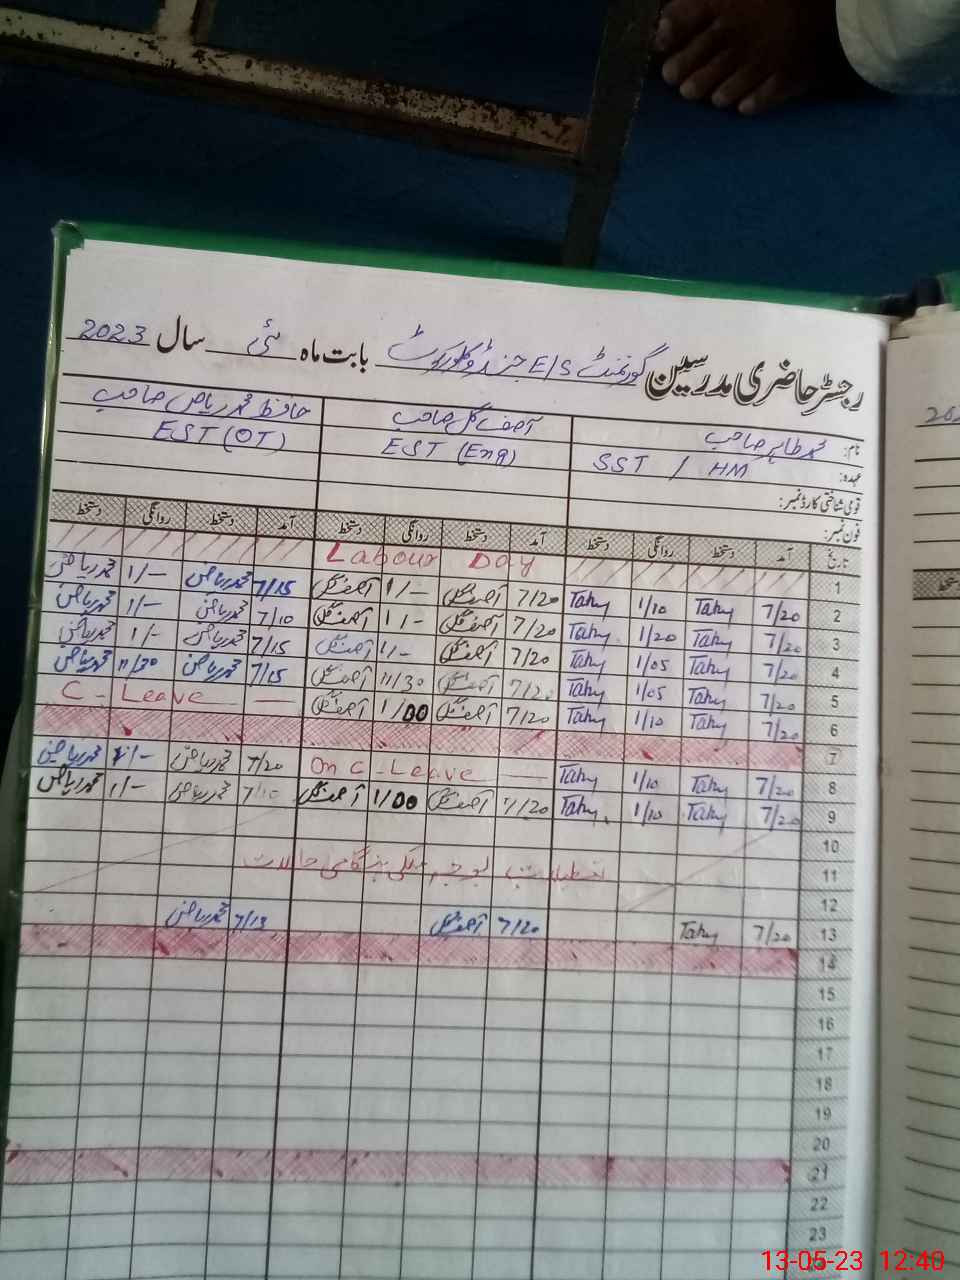 رجسٹر حاضری مدرسین گورنمنٹ E/S بابت ماہ مئی سال 2023
نام: محمد طاہر صاحب آصف گل صاحب حافظ محمد ریاض صاحب
عہدہ: SST / HM EST (Eng) EST (OT)
قومی شناختی کارڈ نمبر:
فون نمبر:
تاریخ آمد دستخط روانگی دستخط آمد دستخط روانگی دستخط آمد دستخط روانگی دستخط
1 Labour Day
2 7/20 Tahy 1/10 Tahy 7/20 آصف گل 1/- آصف گل 7/15 محمد ریاض 1/- محمد ریاض
3 7/20 Tahy 1/20 Tahy 7/20 آصف گل 1/- آصف گل 7/10 محمد ریاض 1/- محمد ریاض
4 7/20 Tahy 1/05 Tahy 7/20 آصف گل 1/- آصف گل 7/15 محمد ریاض 1/- محمد ریاض
5 7/20 Tahy 1/05 Tahy 7/20 آصف گل 11/30 آصف گل 7/15 محمد ریاض 11/30 محمد ریاض
6 7/20 Tahy 1/10 Tahy 7/20 آصف گل 1/00 آصف گل C - Leave
7
8 7/20 Tahy 1/10 Tahy On C - Leave 7/20 محمد ریاض 1/- محمد ریاض
9 7/20 Tahy 1/10 Tahy 7/20 آصف گل 1/00 آصف گل 7/10 محمد ریاض 1/- محمد ریاض
10
11 تعطیلات بوجہ ملکی ہنگامی حالات
12
13 7/20 Tahy 7/20 آصف گل 7/13 محمد ریاض
14
15
16
17
18
19
20
21
22
23
13-05-23 12:40